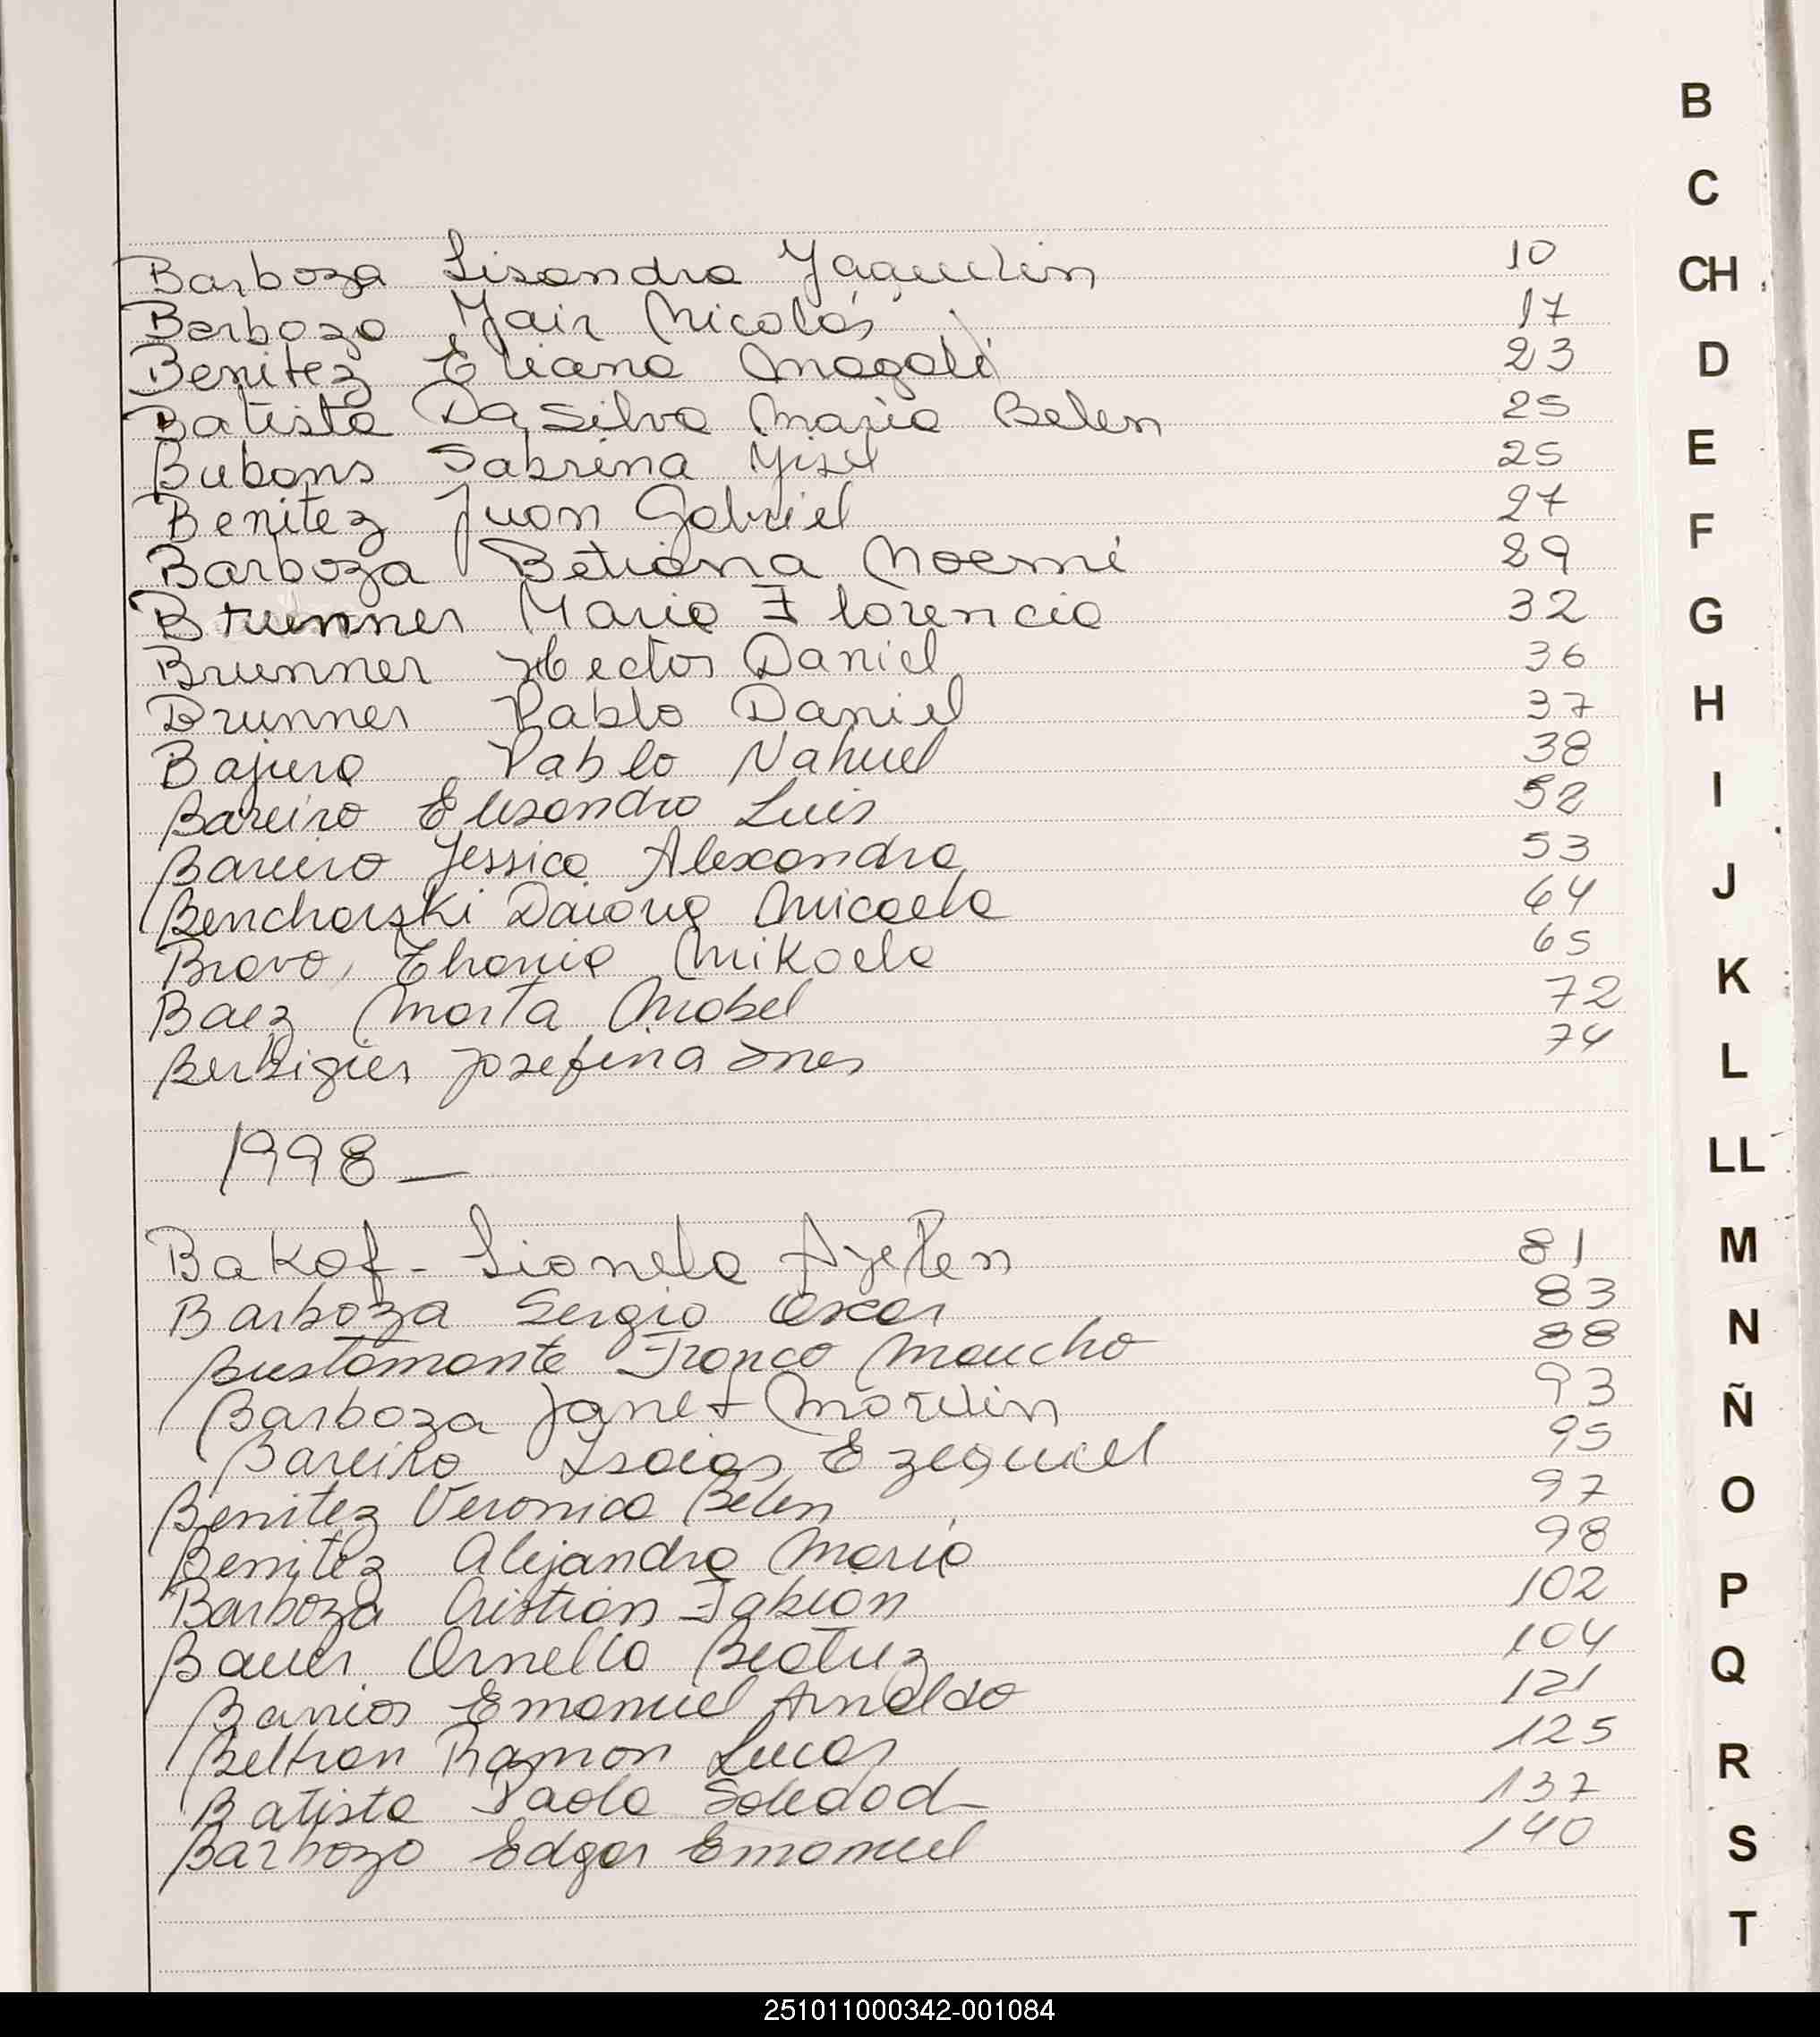 Barboza Lisandra Yaquelin 10
Barbozo Yair Nicolás 17
Benitez Eliana Magalí 23
Batista Da Silva Maria Belen 25
Bubans Sabrina Yisel 25
Benitez Juan Gabriel 27
Barboza Betiana Noemí 29
Brunner Maria Florencia 32
Brunner Hector Daniel 36
Brunner Pablo Daniel 37
Bajura Pablo Nahuel 38
Bareiro Elisandro Luis 52
Bareiro Jessica Alexandra 53
Bencharski Daiana Micaela 64
Bravo, Ehania Mikaela 65
Baez Marta Mabel 72
Berbigier Josefina Ines 74
1998 —
Bakof - Lionela Ayelen 81
Barboza Sergio Oscar 83
Bustamante Franco Maucho 88
Barboza Janet Marilin 93
Bareiro Isaias Ezequiel 95
Benitez Veronica Belen 97
Benitez Alejandra María 98
Barboza Cristian Fabian 102
Bauer Ornella Beatriz 104
Barrios Emanuel Arnaldo 121
Beltran Ramon Lucas 125
Batista Paola Soledad 137
Barbozo Edgar Emanuel 140
B
C
CH
D
E
F
G
H
I
J
K
L
LL
M
N
Ñ
O
P
Q
R
S
T
251011000342-001084